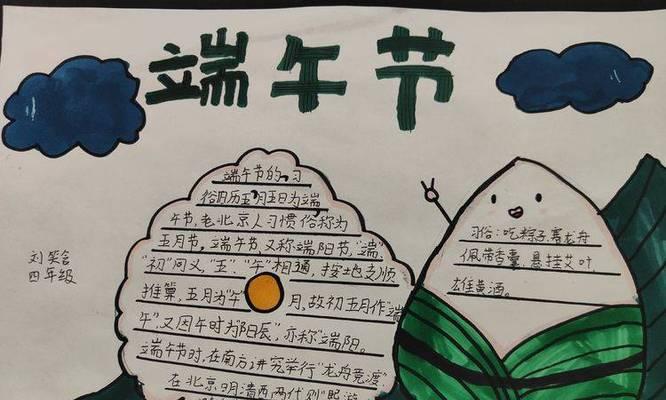 端午节
端午节的习
俗旧历五月五日为端
午节,老北京人习惯俗称为
五月节。端午节又称端阳节,"端"
"初"同义,"五"、"午"相通,按地支顺
推算,五月为"午"月,故初五月作"端
午",又因午时为"阳辰",亦称"端阳。
端午节时,在南方,讲究举行"龙舟竞渡"
在北京明清两代则"
刘奕含
四年级
习俗:吃粽子,赛龙舟
佩带香囊,悬挂艾叶,
雄黄酒。